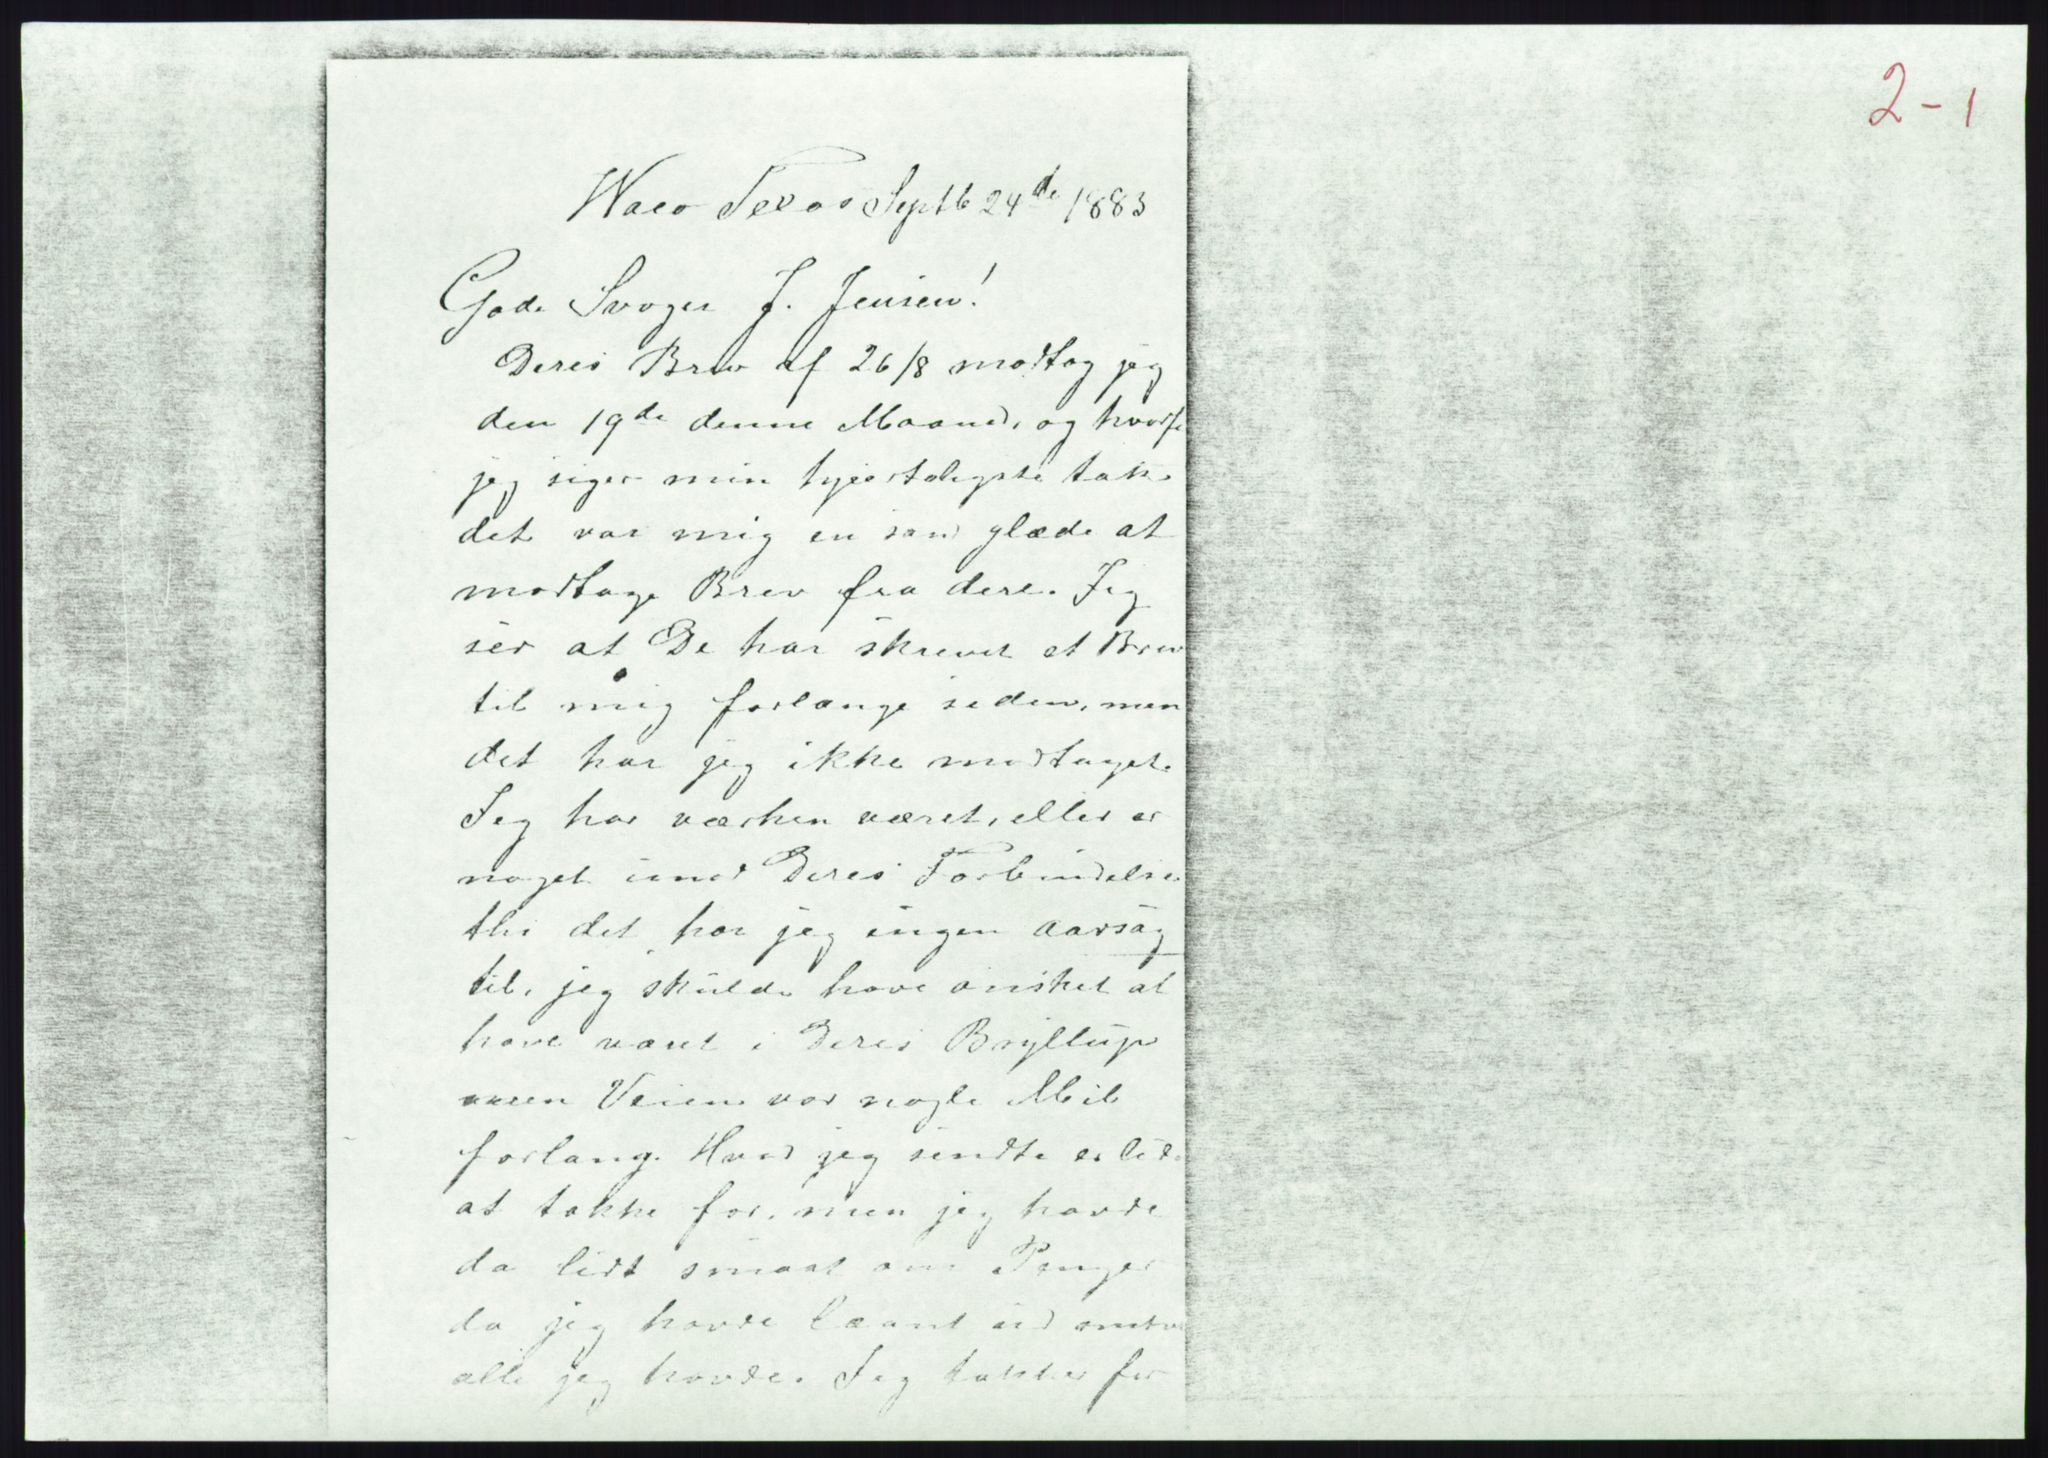 2-1
Waco Texas Septb 24de 1883
Gode Svoger J. Jensen!
Deres Brev af 26/8 modtog jeg
den 19de denne Maaned, og hvorfor
jeg siger min hjerteligste tak.
det var mig en sand glæde at
modtage Brev fra dere. Jeg
ser at De har skrevet et Brev
til mig forlænge siden, men
det har jeg ikke modtaget.
Jeg har værken været, eller er
noget imod Deres Forbindelse
thi det har jeg ingen aarsag
til, jeg skulde have ønsket at
have været i Deres Bryllup
men Veien var nogle Mil
forlang. Hvad jeg sendte er lidt
at takke for, men jeg havde
da lidt smaat om Penger
da jeg havde laant ud omtr
alle jeg havde. Jeg takker for